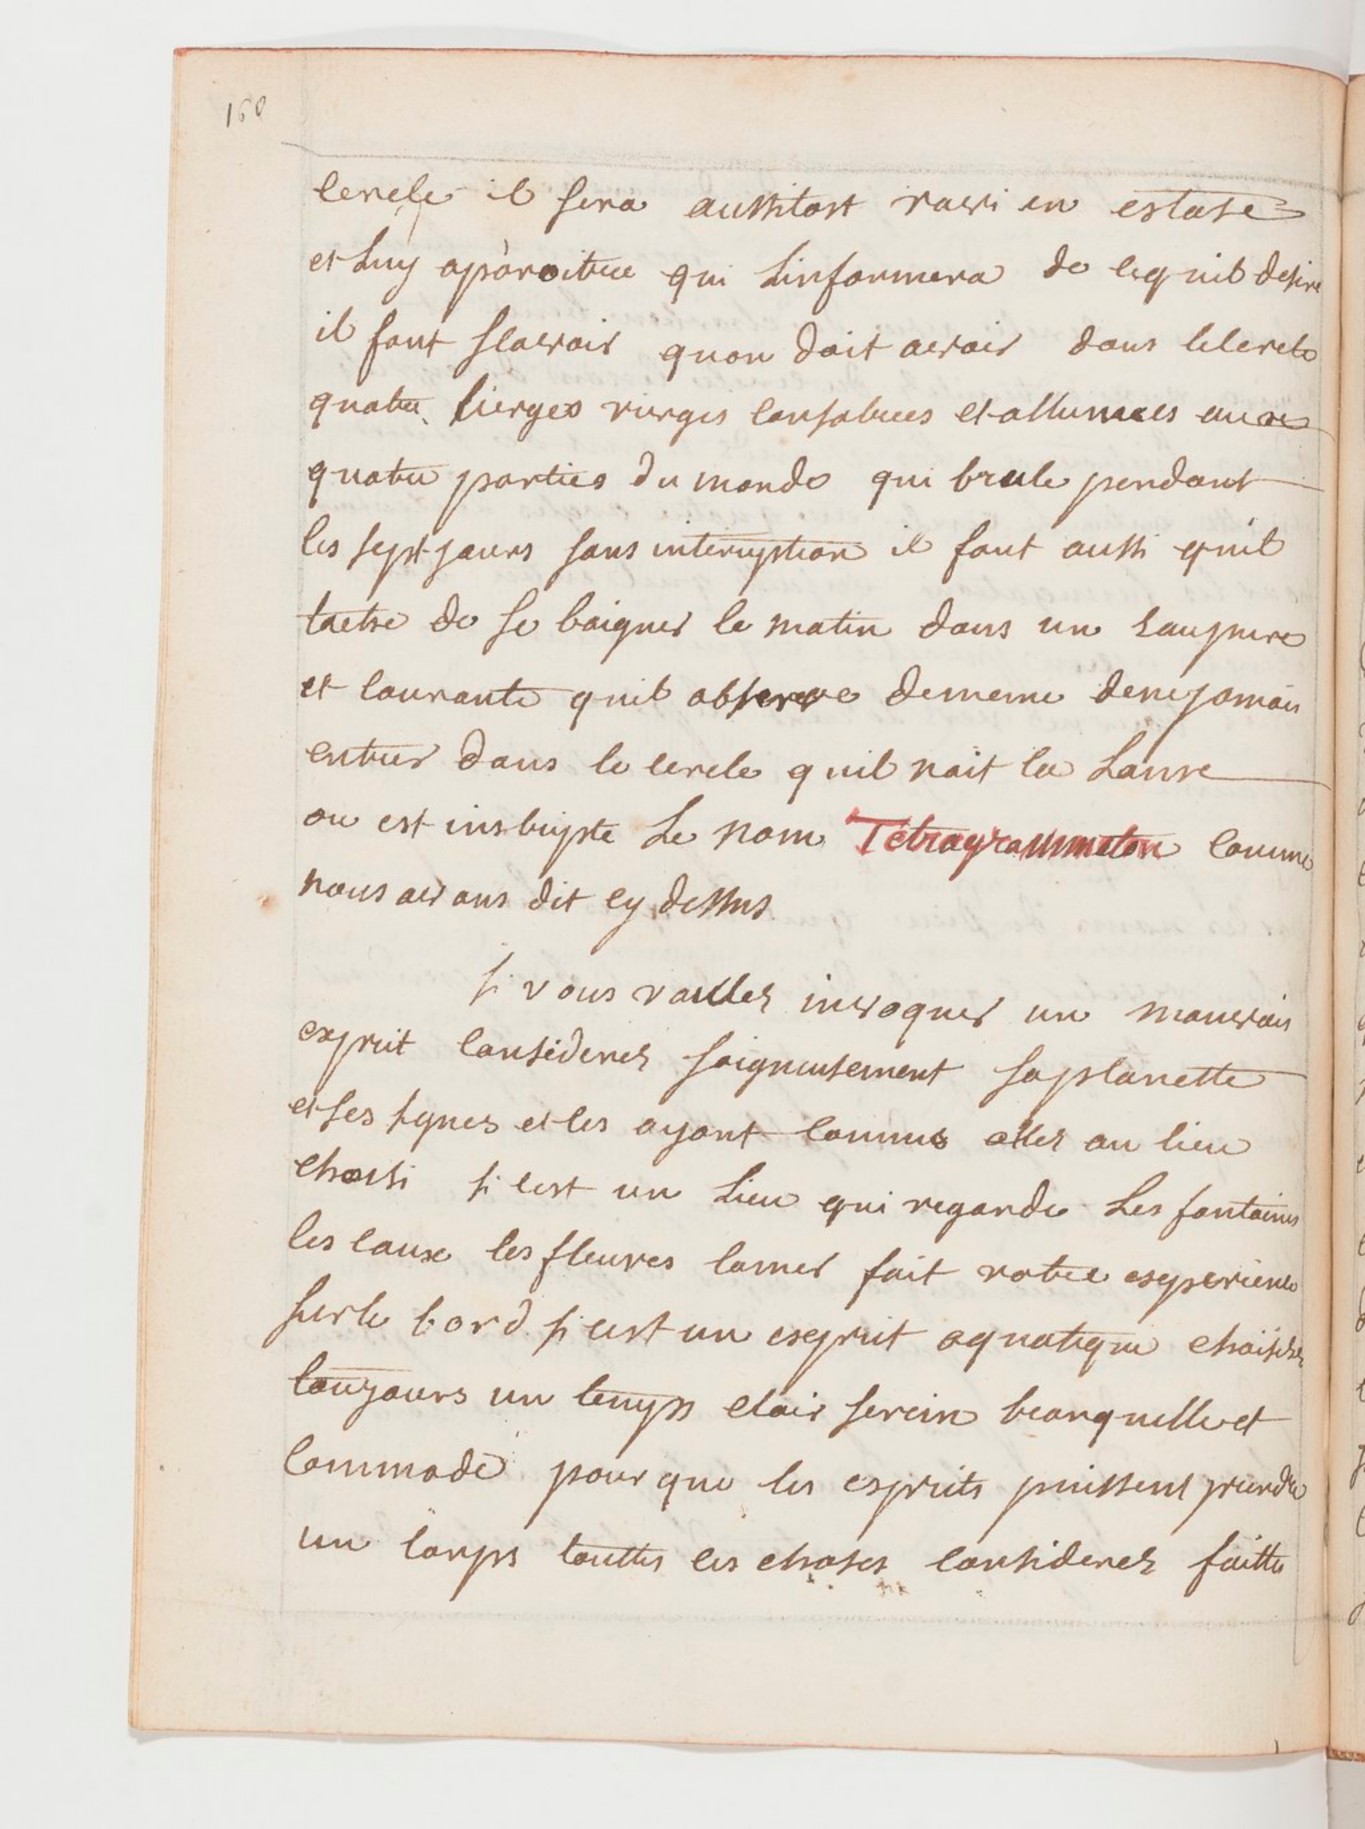 160
cercle il sera aussitost ravi en extase
et luy aparoitre qui Linformera de cequil desire
il faut sçavoir quon doit avoir dans lecercle
quatre cierges vierges consabrees et allumees aux
quatre parties du monde qui brule pendant
les sept jours sans interuption il faut aussi quil
tache de se baigner le matin dans un eaupure
et courante quil observe dememe denejamais
entrer dans le cercle quil nait la Lame
ou est inscripte Le nom Tetragrammaton comme
nous avons dit cy dessus
si vous voullez invoquer un mauvais
esprit considerez soigneusement saplanette
et ses signes et les ayant connus allez au lieu
choisi si cest un Lieu qui regarde Les fontaines
les eaux les fleuves lamer fait votre experience
surle bord si cest un esprit aquatique choisisez
toujours un temps clair serein tranquille et
commode pour que les esprits puissent prendre
un corps touttes ces choses considerez faitte